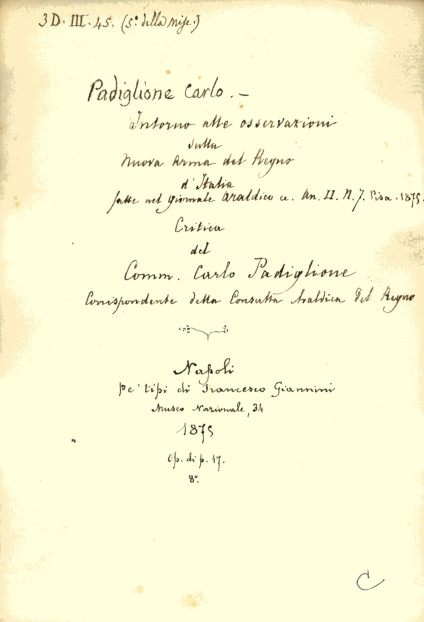 3 D. III. 45. (5° della misc.)
Padiglione Carlo. —
Intorno alle osservazioni
sulla
Nuova Arma del Regno
d'Italia
fatte nel giornale araldico a. An. II. N. 7. Pisa. 1875.
Critica
del
Comm. Carlo Padiglione
Corrispondente della Consulta Araldica del Regno
Napoli
pe' tipi di Francesco Giannini
Museo Nazionale, 34
1875
Op. di p. 17.
8°.
C